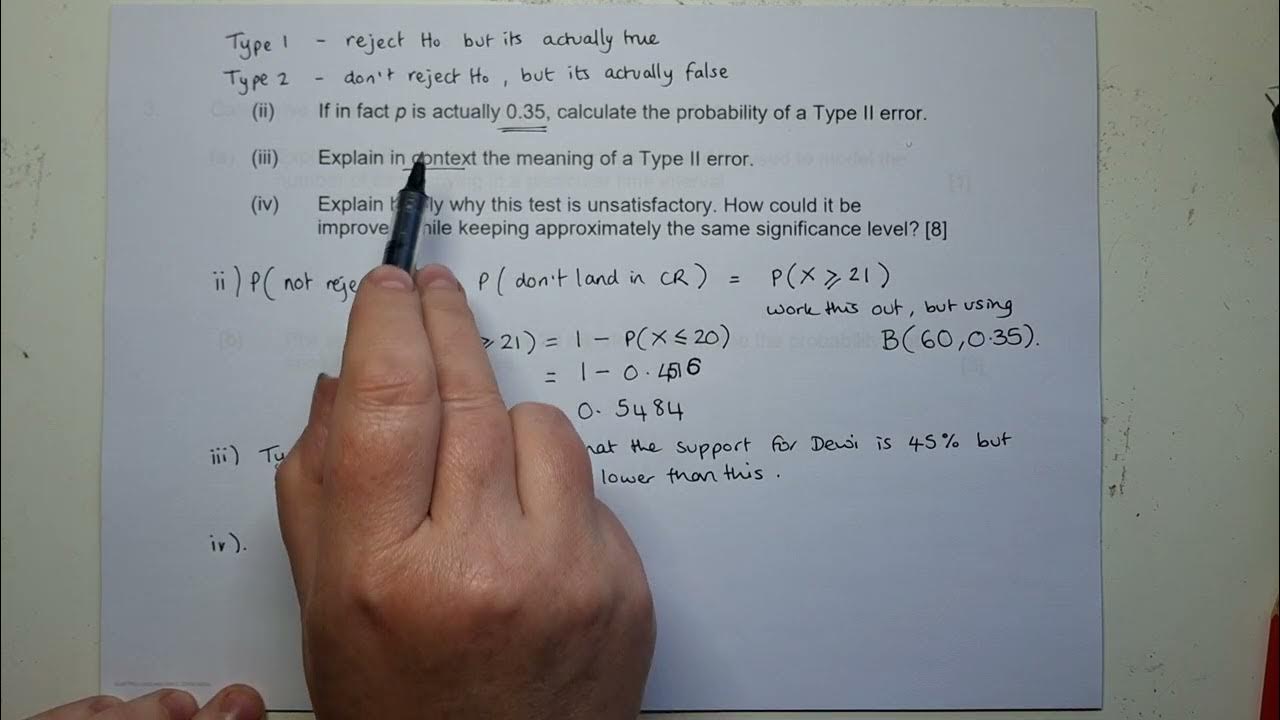 Type 1 - reject Ho but its actually true
Type 2 - don't reject Ho, but its actually false
(ii) If in fact p is actually 0.35, calculate the probability of a Type II error.
(iii) Explain in context the meaning of a Type II error.
(iv) Explain why this test is unsatisfactory. How could it be
keeping approximately the same significance level? [8]
ii) P( not P( don't land in CR ) = P(X ⩾ 21)
work this out, but using
⩾ 21) = 1 - P(X ≤ 20) B(60, 0.35).
= 1 - 0.4516
0.5484
iii) the support for Dewi is 45% but
lower than this.
iv).